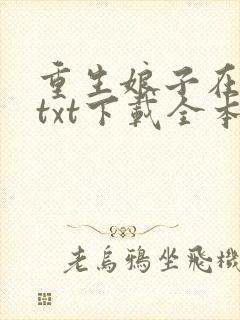 重生娘子在
txt下载全本
老乌鸦坐飞機